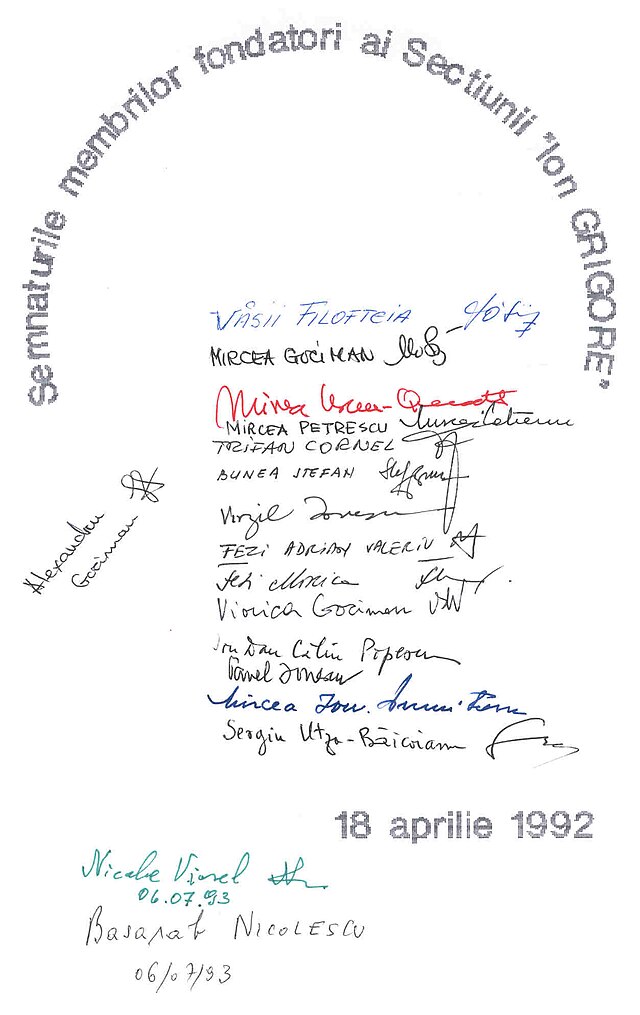 Semnaturile membrilor fondatori ai Sectiunii "Ion GRIGORE"
VASII FILOFTEIA
MIRCEA GOCIMAN
Mirea
MIRCEA PETRESCU
TRIFAN CORNEL
BUNEA STEFAN
Virgil Ionescu
FEZI ADRIAN VALERIU
Fezi Monica
Viorica Gociman
Ion Dan Călin Popescu
Pavel Ionescu
Mircea Ion. Dumitrescu
Sergiu Utza-Băicoianu
Alexandru
Gociman
18 aprilie 1992
Nicolae Viorel
06.07.93
Basarab NICOLESCU
06/07/93